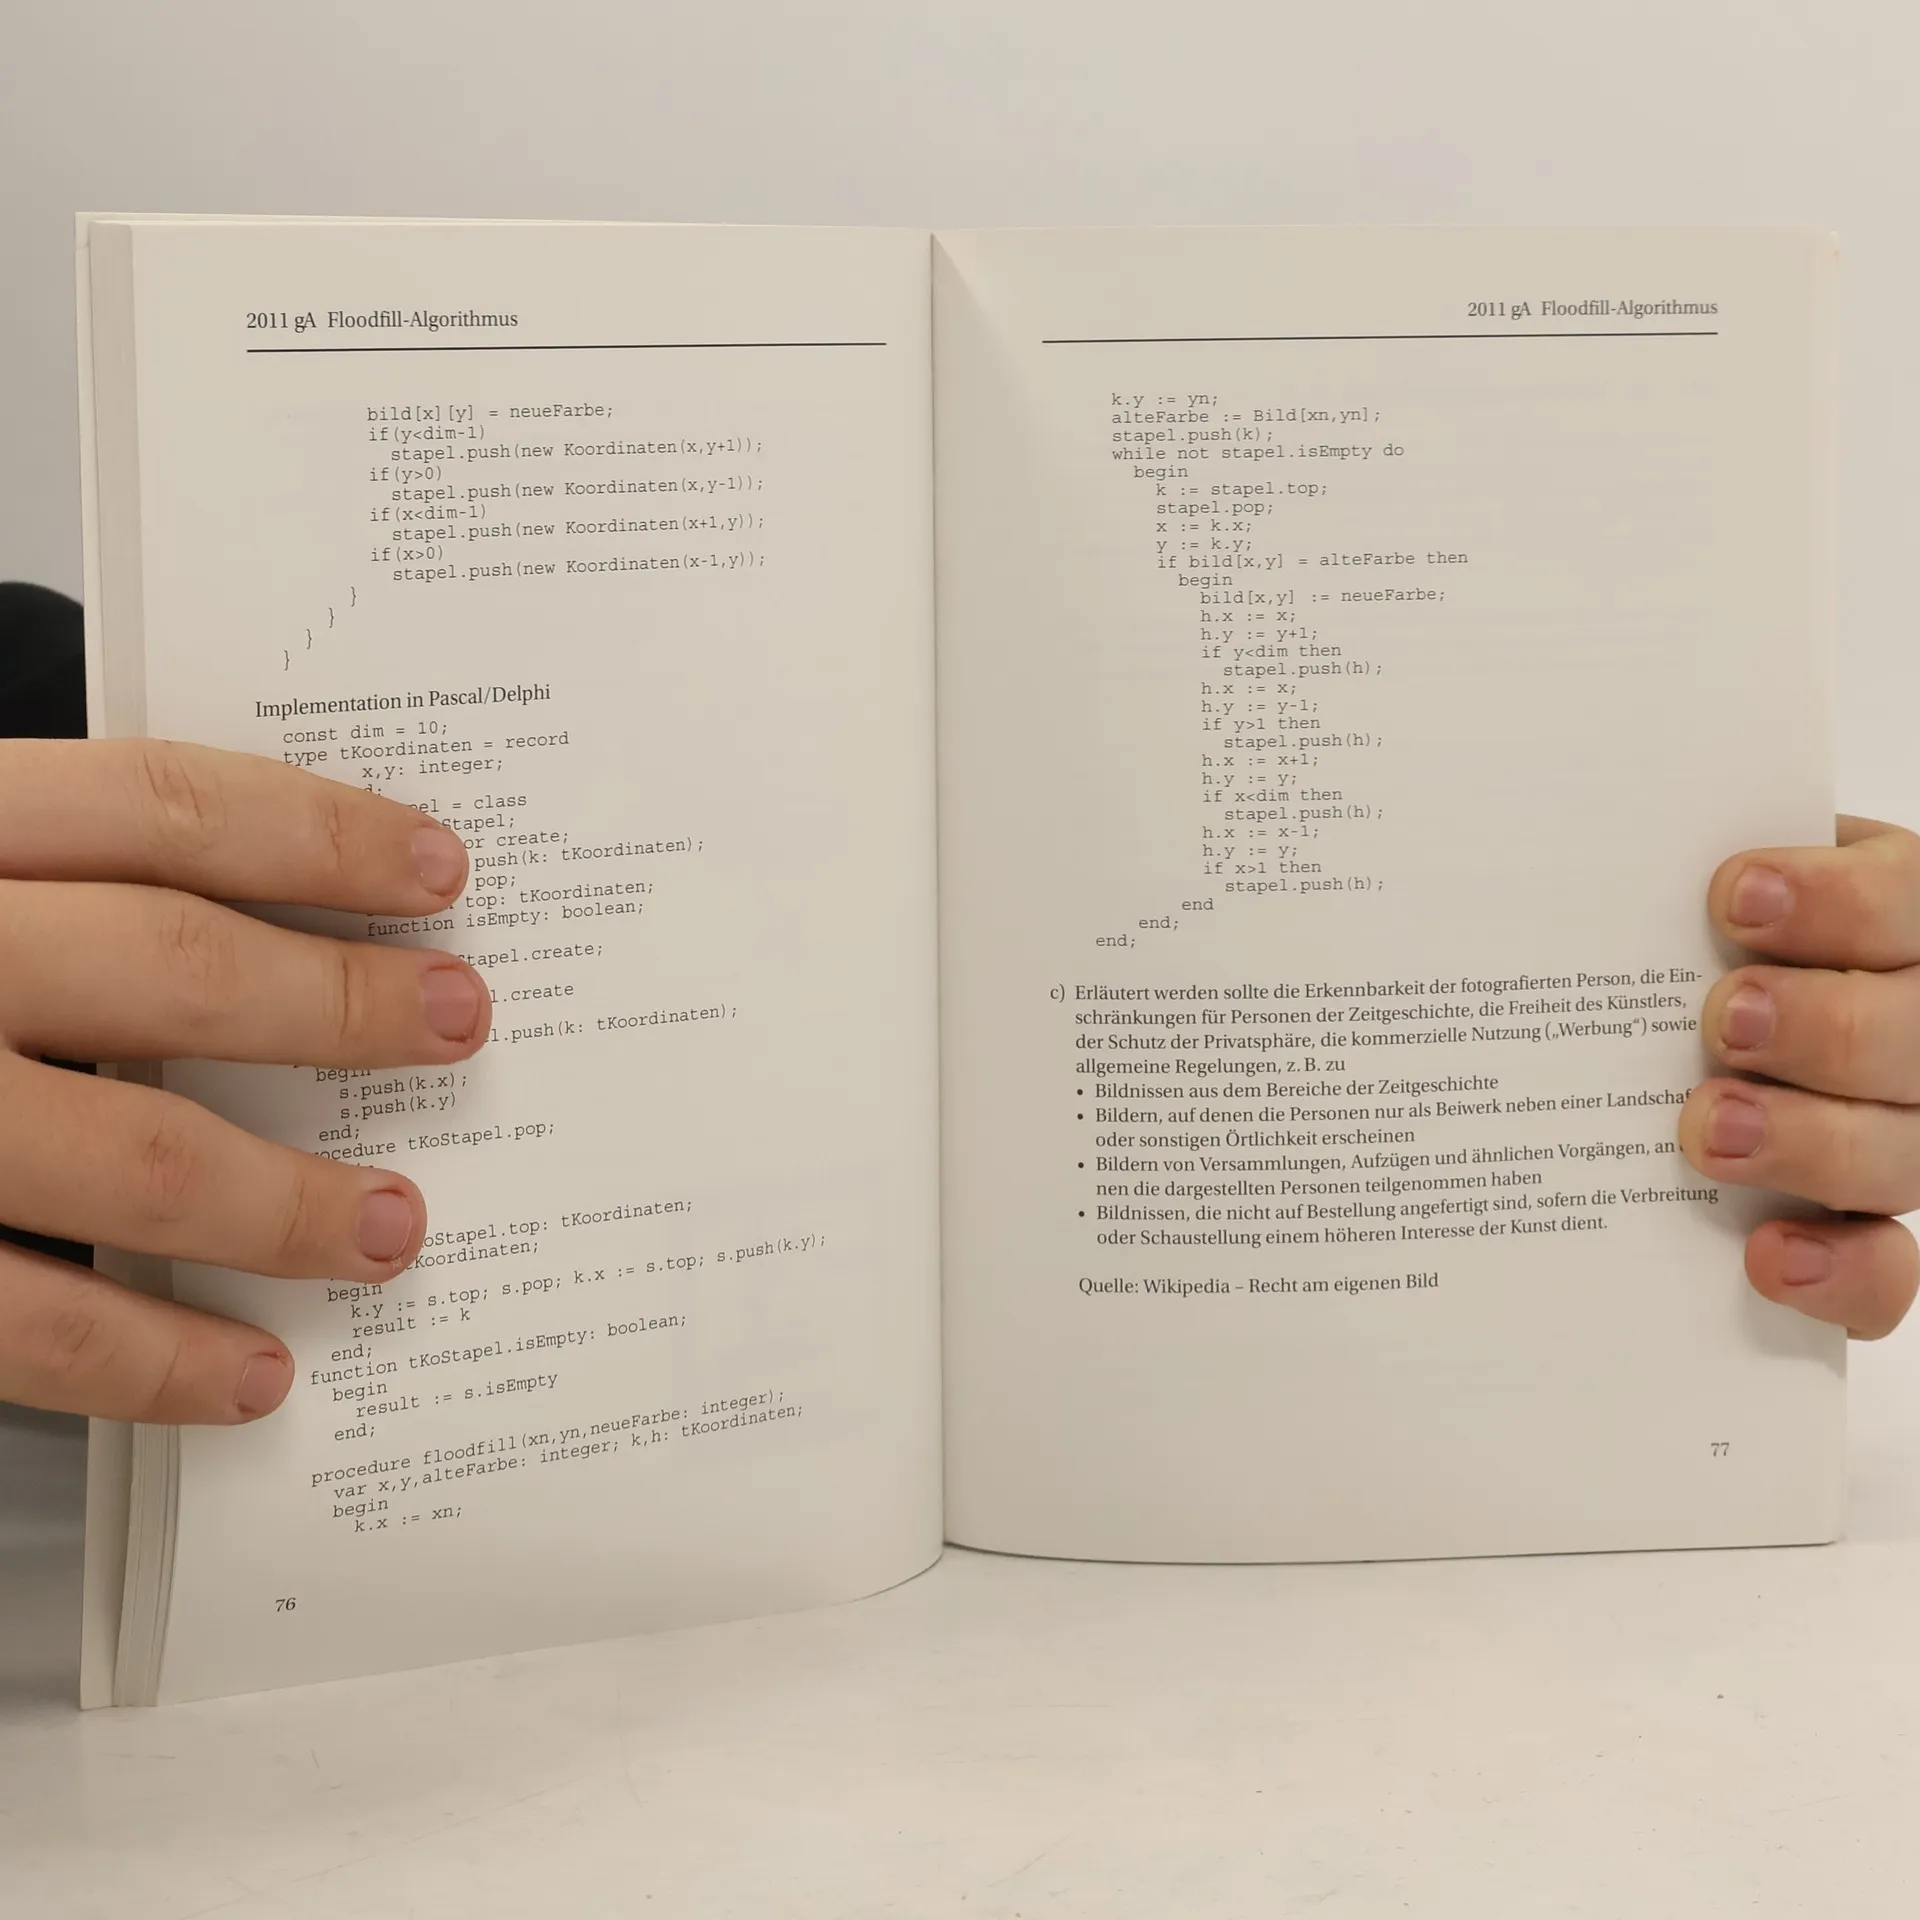 2011 gA Floodfill-Algorithmus
bild[x][y] = neueFarbe;
if(y<dim-1)
stapel.push(new Koordinaten(x,y+1));
if(y>0)
stapel.push(new Koordinaten(x,y-1));
if(x<dim-1)
stapel.push(new Koordinaten(x+1,y));
if(x>0)
stapel.push(new Koordinaten(x-1,y));
}
}
}
}
Implementation in Pascal/Delphi
const dim = 10;
type tKoordinaten = record
x,y: integer;
= class
create;
push(k: tKoordinaten);
pop;
top: tKoordinaten;
function isEmpty: boolean;
.create;
.create
.push(k: tKoordinaten);
begin
s.push(k.x);
s.push(k.y)
end;
tKoStapel.pop;
.top: tKoordinaten;
begin
k.y := s.top; s.pop; k.x := s.top; s.push(k.y);
result := k
end;
function tKoStapel.isEmpty: boolean;
begin
result := s.isEmpty
end;
procedure floodfill(xn,yn,neueFarbe: integer);
var x,y,alteFarbe: integer; k,h: tKoordinaten;
begin
k.x := xn;
76
2011 gA Floodfill-Algorithmus
k.y := yn;
alteFarbe := Bild[xn,yn];
stapel.push(k);
while not stapel.isEmpty do
begin
k := stapel.top;
stapel.pop;
x := k.x;
y := k.y;
if bild[x,y] = alteFarbe then
begin
bild[x,y] := neueFarbe;
h.x := x;
h.y := y+1;
if y<dim then
stapel.push(h);
h.x := x;
h.y := y-1;
if y>1 then
stapel.push(h);
h.x := x+1;
h.y := y;
if x<dim then
stapel.push(h);
h.x := x-1;
h.y := y;
if x>1 then
stapel.push(h);
end
end;
end;
c) Erläutert werden sollte die Erkennbarkeit der fotografierten Person, die Ein-
schränkungen für Personen der Zeitgeschichte, die Freiheit des Künstlers,
der Schutz der Privatsphäre, die kommerzielle Nutzung („Werbung“) sowie
allgemeine Regelungen, z. B. zu
• Bildnissen aus dem Bereiche der Zeitgeschichte
• Bildern, auf denen die Personen nur als Beiwerk neben einer
oder sonstigen Örtlichkeit erscheinen
• Bildern von Versammlungen, Aufzügen und ähnlichen Vorgängen, an
nen die dargestellten Personen teilgenommen haben
• Bildnissen, die nicht auf Bestellung angefertigt sind, sofern die Verbreitung
oder Schaustellung einem höheren Interesse der Kunst dient.
Quelle: Wikipedia – Recht am eigenen Bild
77